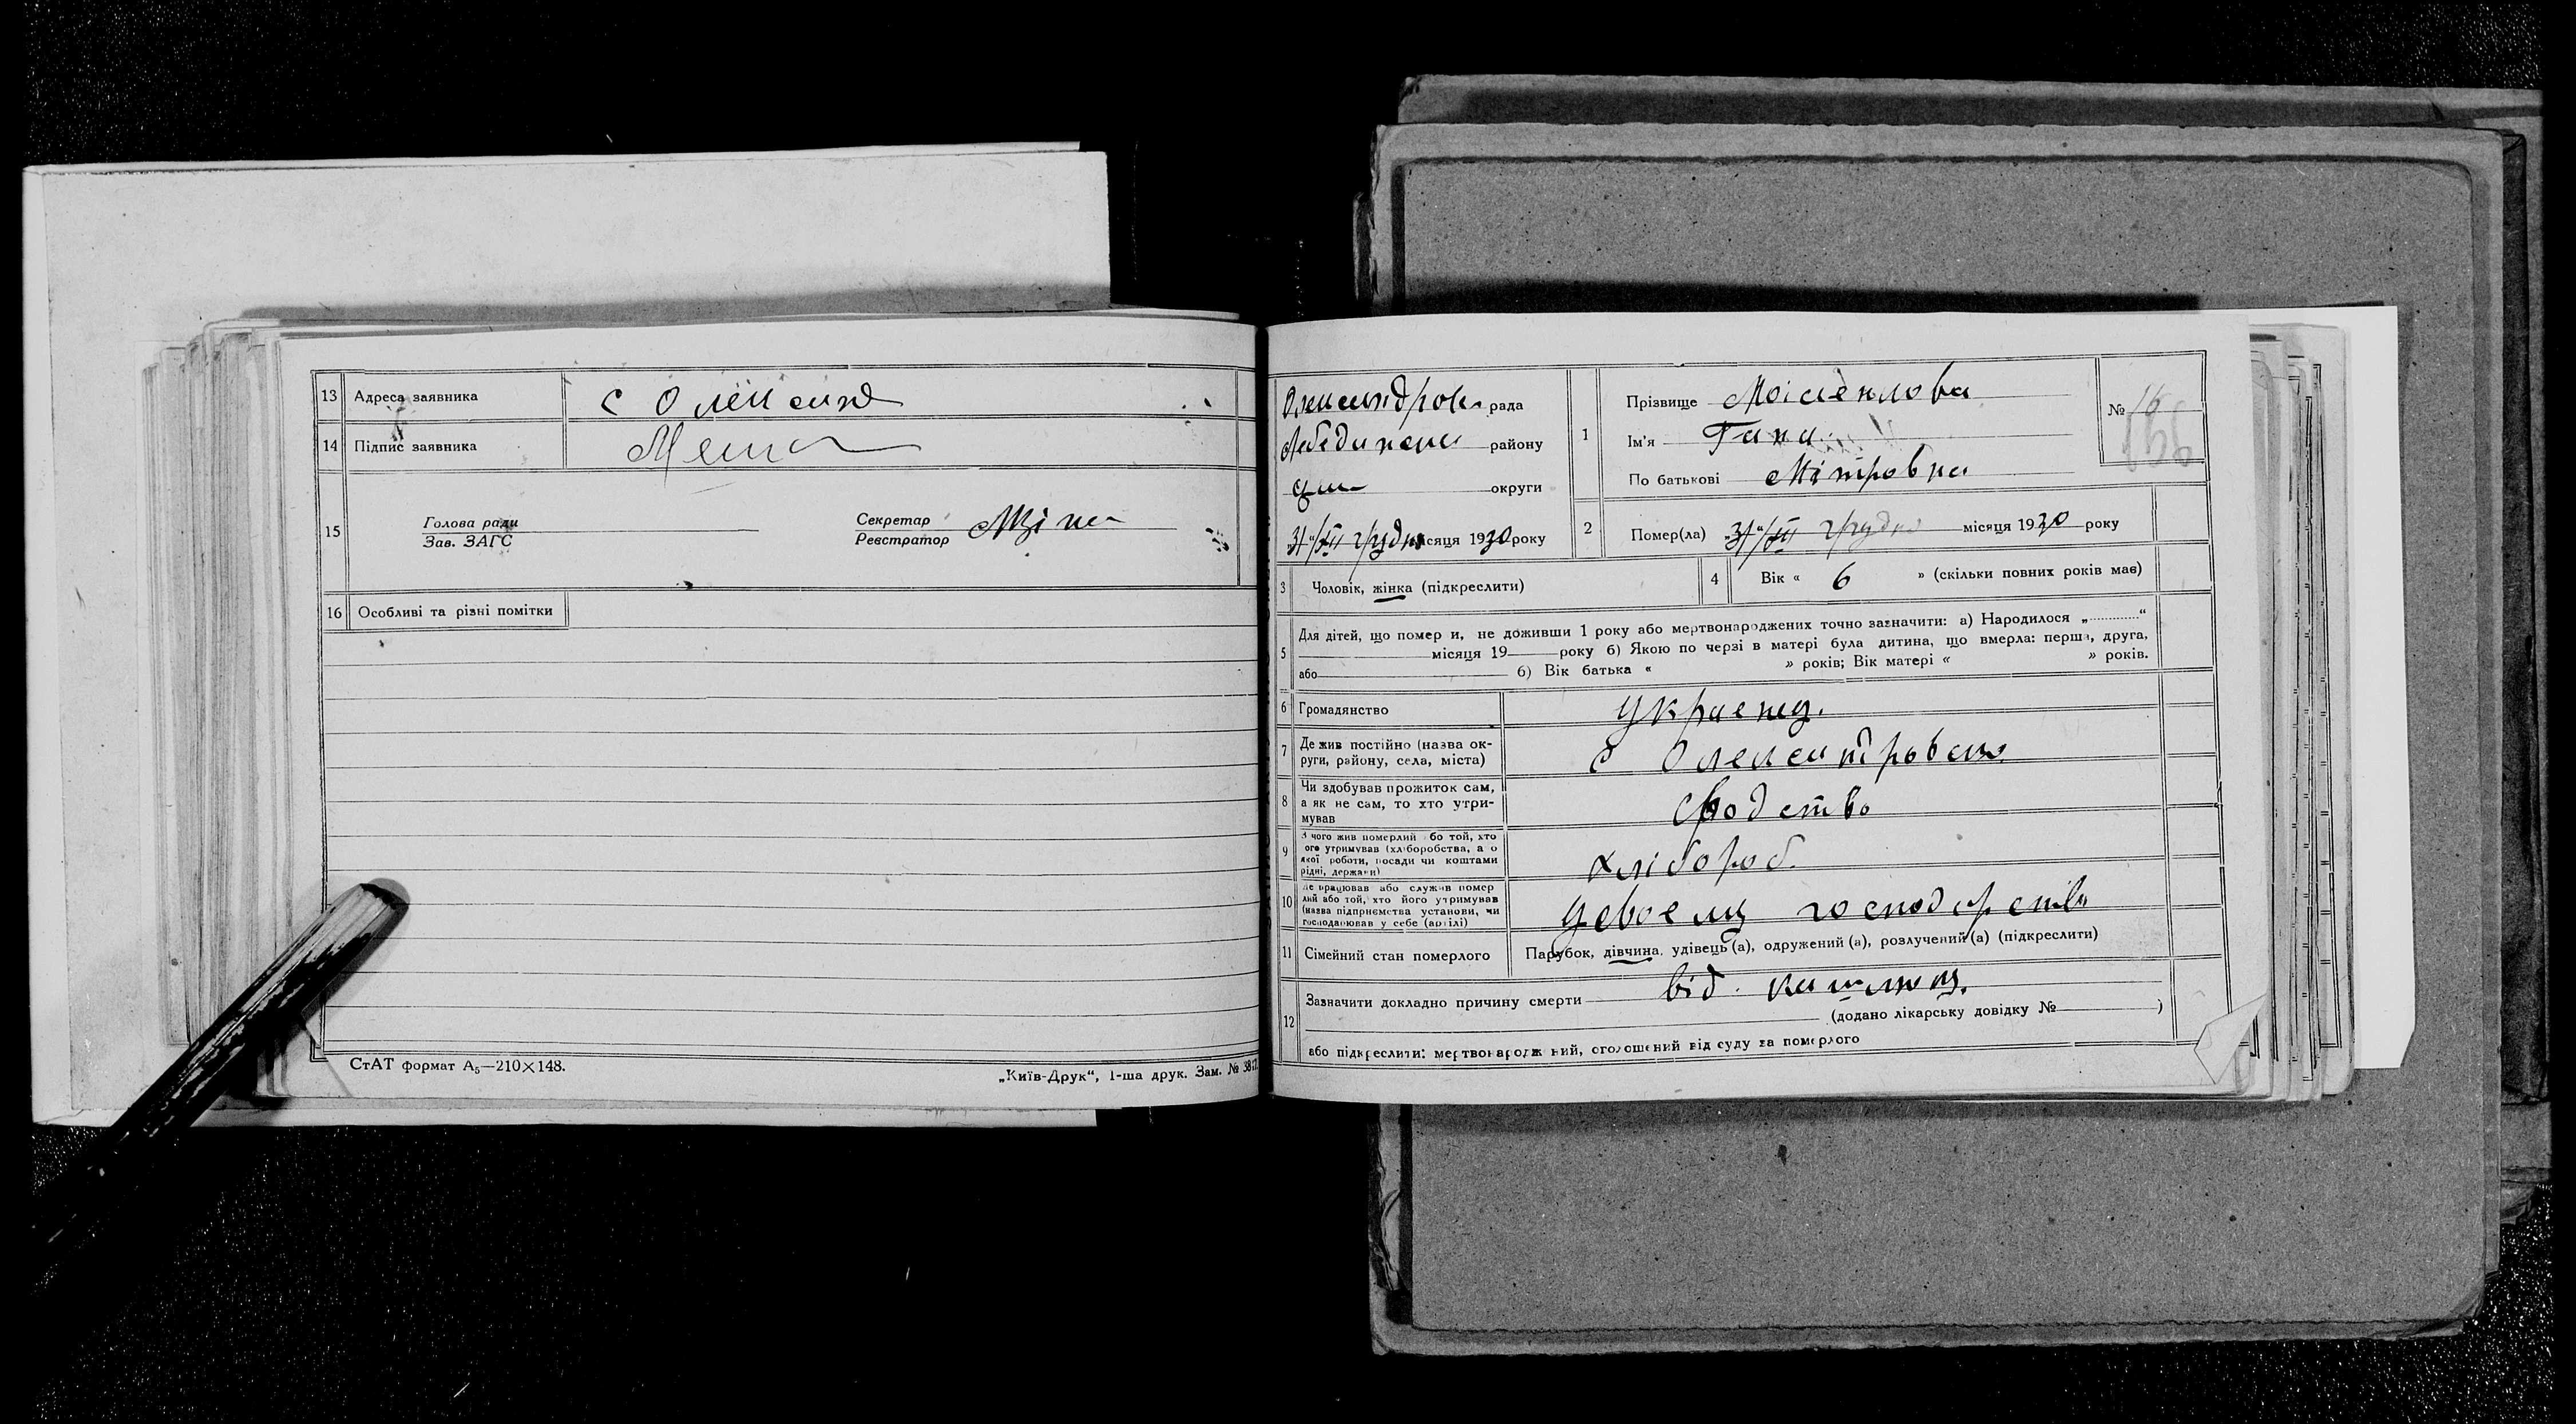 13 Адреса заявника с Олександ
14 Підпис заявника
15 Голова ради
Зав. ЗАГС
Секретар
Реєстратор
16 Особливі та різні помітки
СтАТ формат А5—210×148.
„Київ-Друк“, 1-ша друк. Зам. №
Олександров рада
Лебединськ району
округи
31/XII грудня місяця 1930 року
1 Прізвище
Ім'я Гана
По батькові Мітровна
№ 16
166
2 Помер(ла) „31“/XII грудня місяця 1930 року
3 Чоловік, жінка (підкреслити)
4 Вік « 6 » (скільки повних років має)
5 Для дітей, що помер и, не доживши 1 року або мертвонароджених точно зазначити: а) Народилося „ “
місяця 19 року б) Якою по черзі в матері була дитина, що вмерла: перша, друга,
або б) Вік батька « » років; Вік матері « » років.
6 Громадянство Украенец.
7 Де жив постійно (назва ок-
руги, району, села, міста) с Олексантровка
8 Чи здобував прожиток сам,
а як не сам, то хто утри-
мував родство
9 З чого жив померлий бо той, хто
ого утримував (хліборобства, а о
якої роботи, посади чи коштами
рідні, держави) хлібороб.
10 Де працював або служив помер
лий або той, хто його утримував
(назва підприємства установи, чи
господарював у себе (артілі) у своему господарстві
11 Сімейний стан померлого Парубок, дівчина, удівець (а), одружений (а), розлучений (а) (підкреслити)
12 Зазначити докладно причину смерти від кашлюку.
(додано лікарську довідку № )
або підкреслити: мертвонародж ний, оголошений від суду за померлого